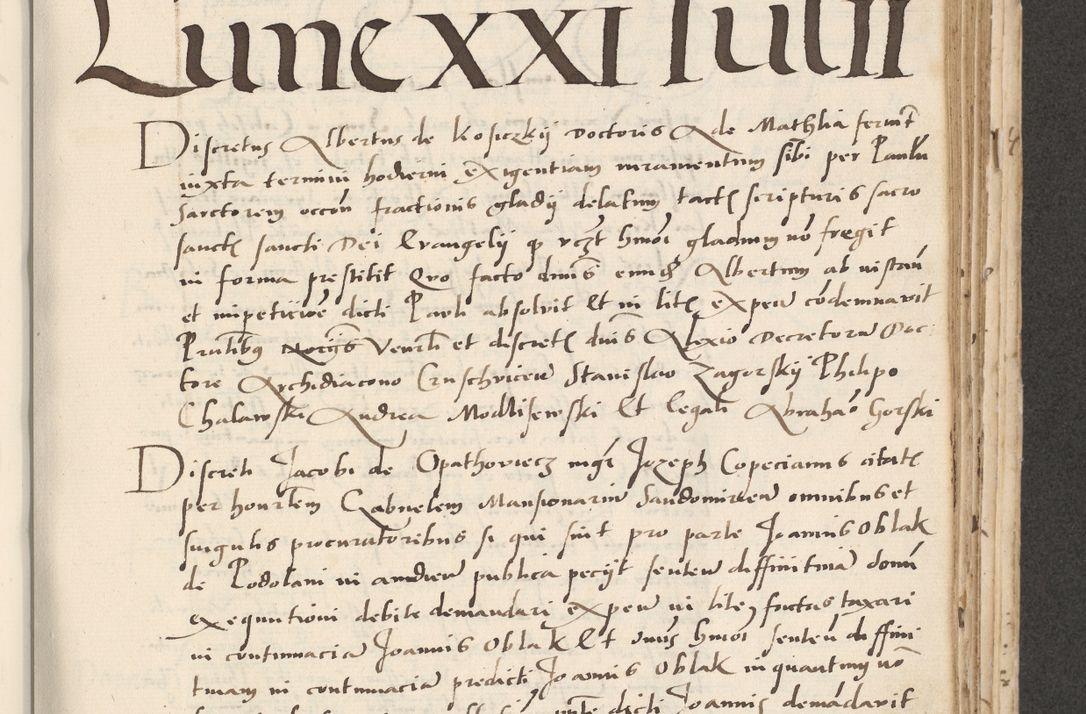 Lune XXI Iulii
Discretus Albertus de Kosiczkij Doctoris A de Mathlia
iuxta termini hodierni exigentiam iuramentum sibi per Paulũ
Sartorem occõn fractionis gladij delatum tactȩ scripturis sacro
sanctȩ sancti Dei Evangelij hmõi gladium nõ fregit
in forma prestitit Quo facto dnus eundẽ Albertum ab instan̄
et impeticiõe dicti Pauli absolvit Et in litȩ expen̄ cõdemnavit
Pntibus Venerli et discretȩ dnis Alexio Decretorũ Doc
tore Archidiacono Cruschvicen̄ Stanislao Zagorskij Philipo
Chalawski Andrea Modlisewski Et legali Abrahaõ Gorski
Discreti Jacobi de Opathoviecz mgri Jozeph Copecianus citatȩ
per honrlem Gabrielem Mansionariũ Sandomirien̄ omnibus et
singulis procuratoribus si qui sint pro parte Joannis Oblak
de Podolani in audien̄ publica pecijt senten̄ diffinitivã domũ
exequutioni debite demandari expen̄ in lite factas taxari
in contumaciã Joannis Oblak Et dnus hmõi senten̄ diffini
tivam in contumaciã predicti Joannis Oblak in quantum nõ
dicti Joannis demãdavit